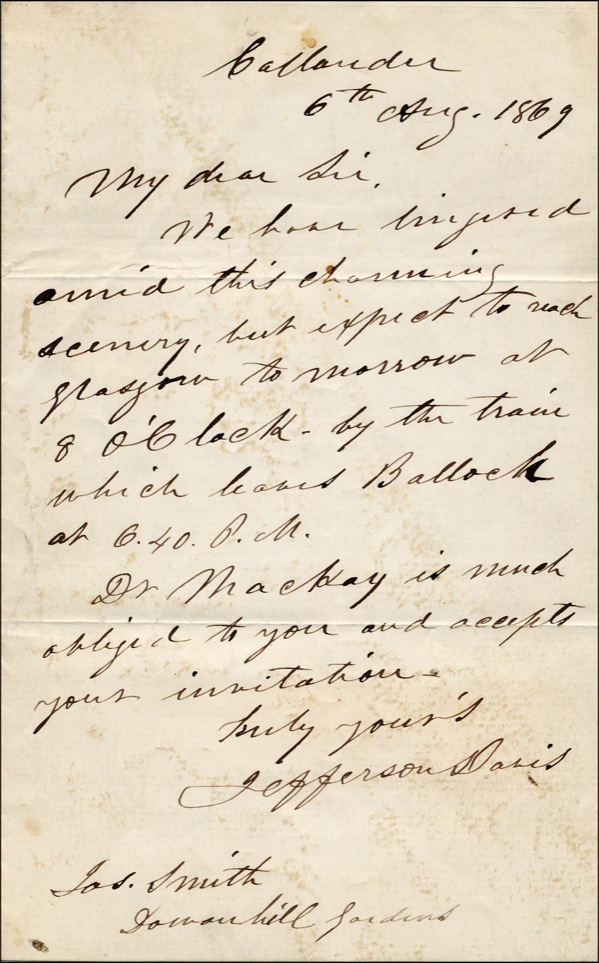 Callander
6th Aug. 1869
My dear Sir,
We have lingered
amid this charming
scenery, but expect to reach
Glasgow to morrow at
8 O'Clock - by the train
which leaves Ballock
at 6.40. P.M.
Dr Mackay is much
obliged to you and accepts
your invitation -
Truly your's
Jefferson Davis
Jas. Smith
Dowanhill Gardens